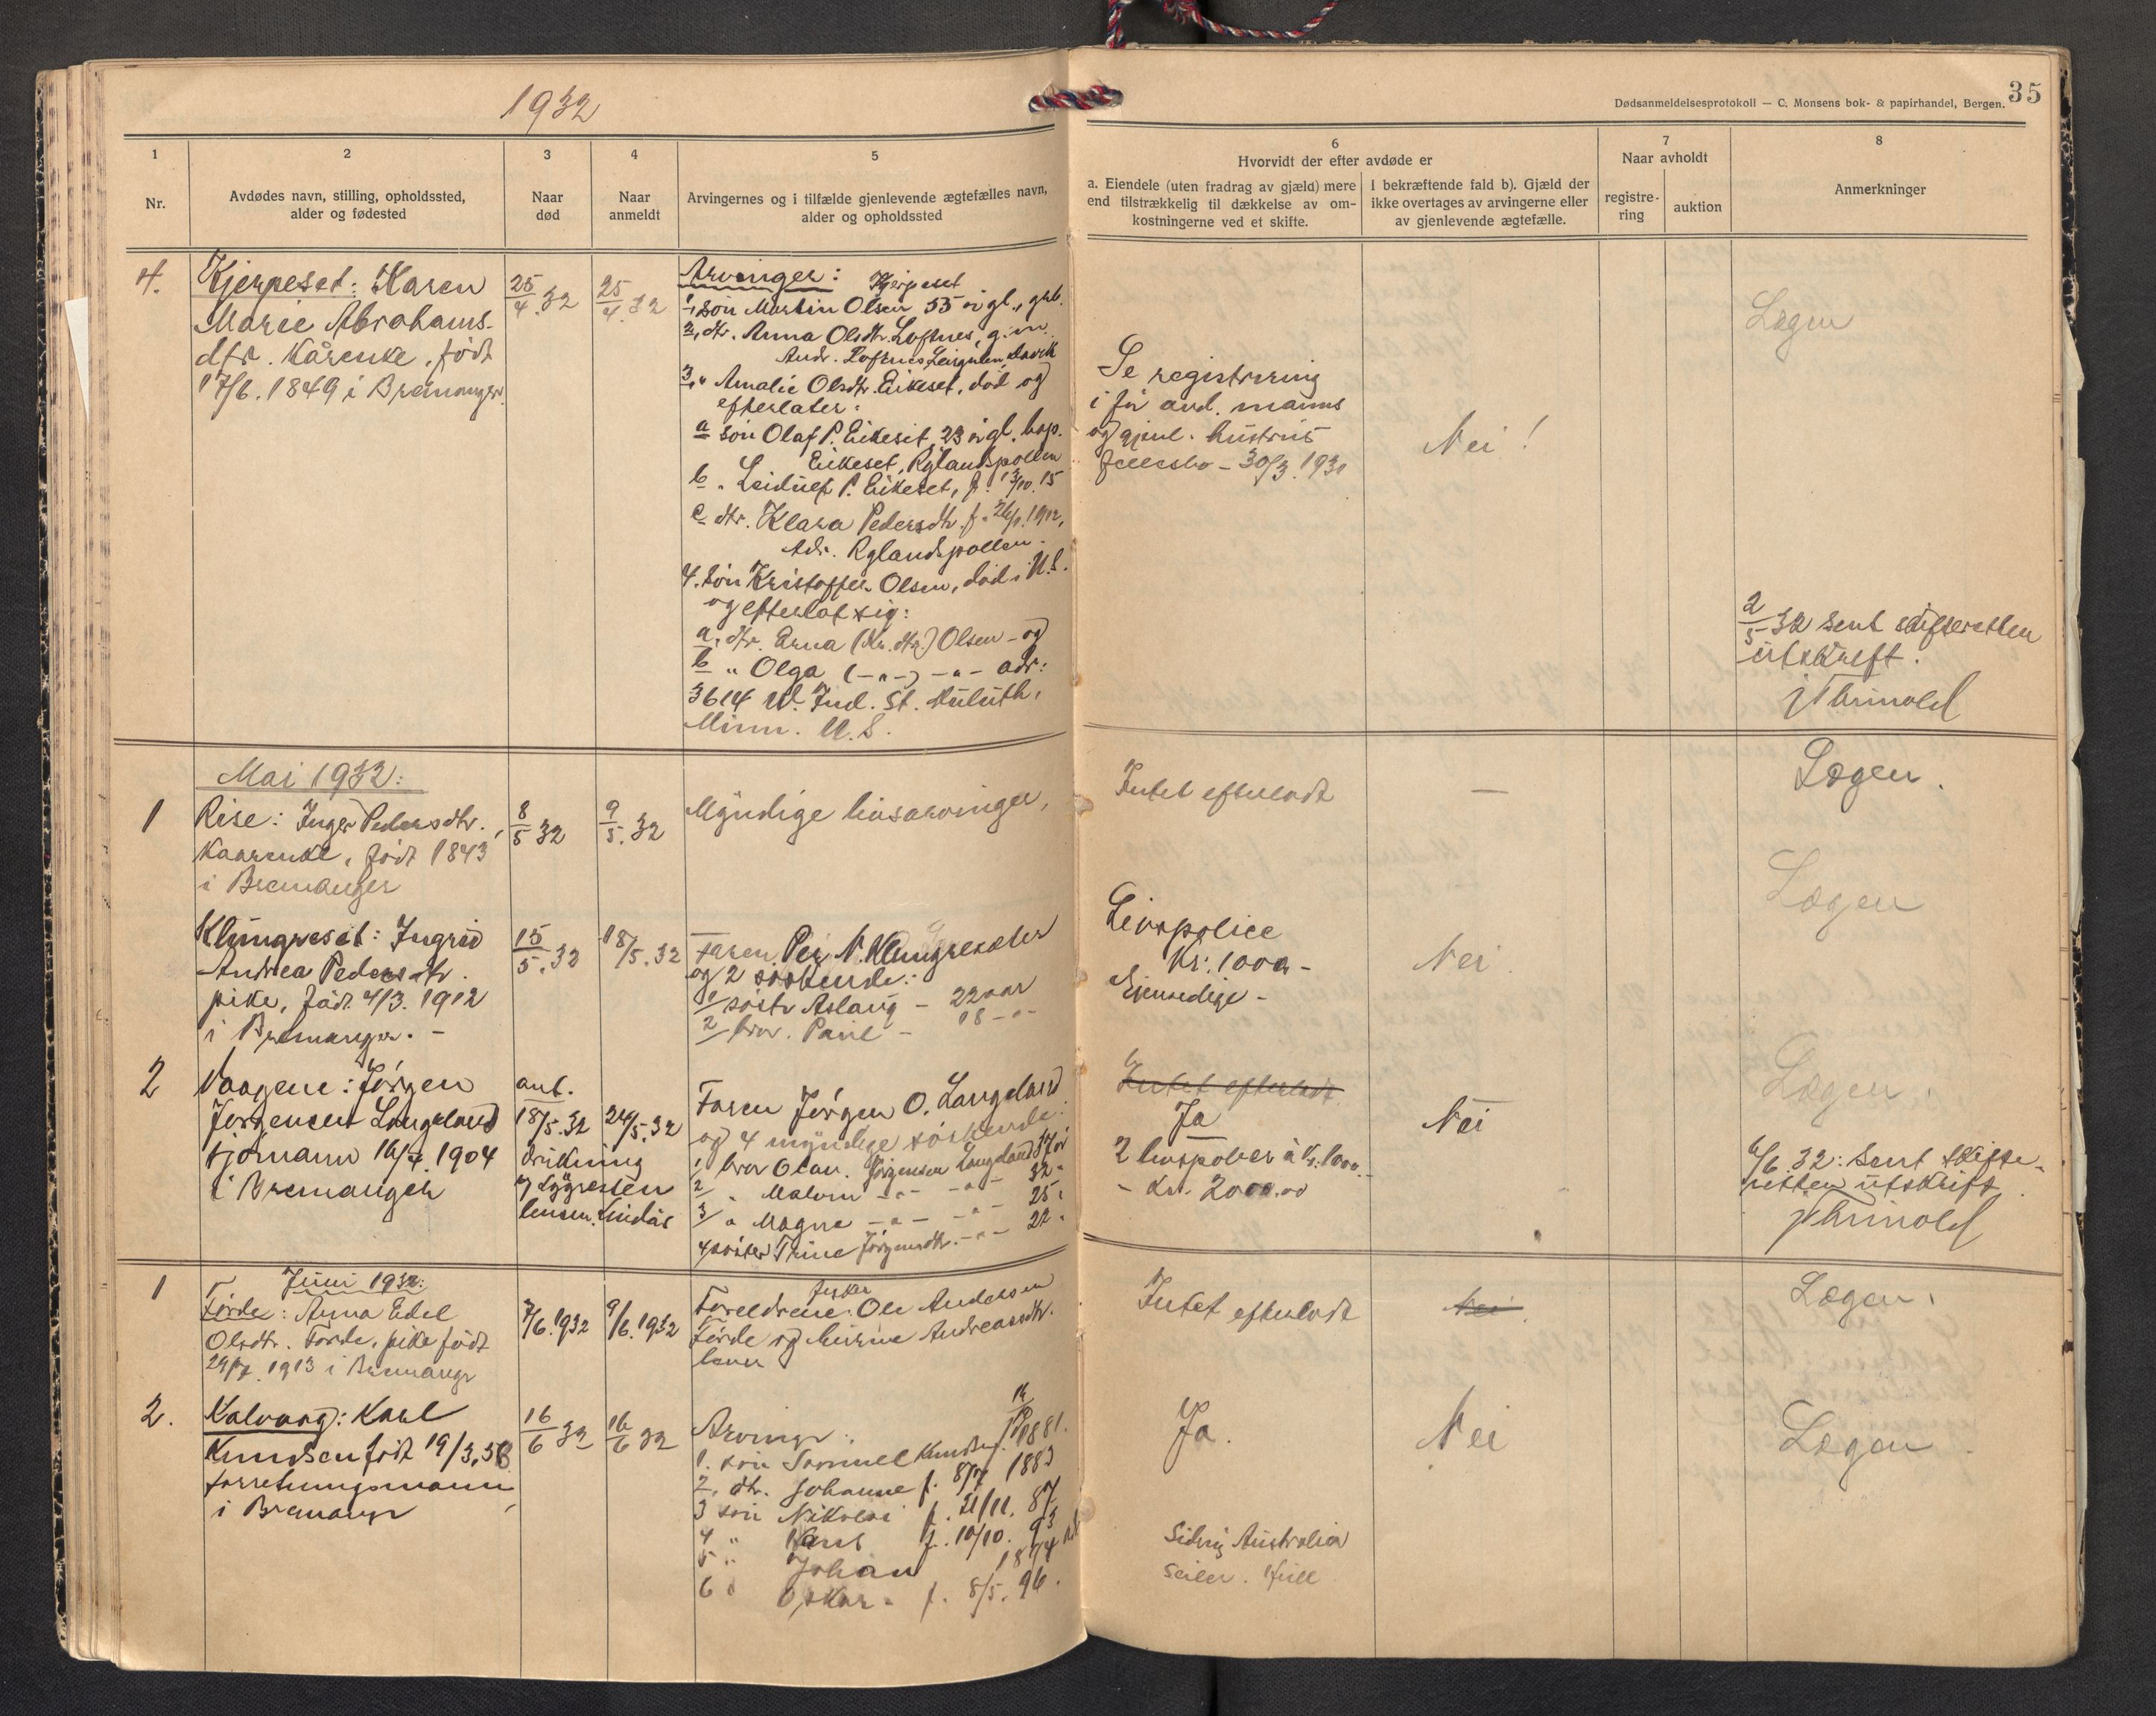 1932
Dødsanmeldelsesprotokoll — C. Monsens bok- & papirhandel, Bergen.
35
1
2
3
4
5
6
7
8
Nr.
Avdødes navn, stilling, opholdssted,
alder og fødested
Naar
død
Naar
anmeldt
Arvingernes og i tilfælde gjenlevende ægtefælles navn,
alder og opholdssted
Hvorvidt der efter avdøde er
a. Eiendele (uten fradrag av gjæld) mere
end tilstrækkelig til dækkelse av om-
kostningerne ved et skifte.
I bekræftende fald b). Gjæld der
ikke overtages av arvingerne eller
av gjenlevende ægtefælle.
Naar avholdt
registre-
ring
auktion
Anmerkninger
4.
Kjerpeset: Karen
Marie Abrahams-
dtr. Kårenke, født
17/6. 1849 i Bremanger.
25/4.32
25/4.32
Arvinger: Kjerpeset
1, søn Martin Olsen 55 år gl., gkb.
2, dtr. Anna Olsdtr. Loftnes, g.m.
Andr. Loftnes, Leirgulen, Davik
3, " Amalie Olsdtr. Eikeset, død og
efterlater:
a søn Olaf P. Eikeset, 23 år gl.
Eikeset, Rylandspollen
b " Leidulf P. Eikeset, f. 13/10.15
c dtr. Klara Pedersdtr. f. 1912,
Adr. Rylandspollen.
4. søn Kristoffer Olsen, død i U.S.
og efterlot sig:
a, dtr. Erna (Kr.dtr.) Olsen - og
b " Olga (-"-) -"- adr:
3614 W. Ind. St. Duluth,
Minn. U.S.
Se registrering
i før avd. manns
og gjenl. hustrus
fellesbo - 30/3.1931
Nei!
Lægen
2/5 32 sent skifteretten
utskrift.
Mai 1932:
1
Rise: Inger Pedersdtr.,
Kaarenke, født 1843
i Bremanger
8/5 32
9/5.32
Myndige livsarvinger,
Intet efterladt
—
Lægen.
Klungreset: Ingrid
Andrea Pedersdtr.
pike, født 4/3. 1912
i Bremanger. -
15/5.32
18/5.32
Faren Per N. Klungreseter
og 2 søskende:
1/ søster Aslaug - 22 aar
2/ bror. Paul - 18 -"-
Livspolice
Kr. 1000 -
Nei.
Lægen
2
Vaagene: Jørgen
Jørgensen Langeland
sjømann 16/4. 1904
i Bremanger
ant.
18/5.32
drukning
24/5.32
Lindås
Faren Jørgen O. Langeland
og 4 myndige søskende:
1/ bror Olav. Jørgensen Langeland 37 år
2/ " Malvin -"- -"- 32 "
3/ " Magne -"- -"- 25 "
4 søster Trine Jørgensdtr. -"- 22 "
Intet efterladt
Ja
2 livspolicer à kr. 1000.-
- kr. 2000.00
Nei
Lægen.
6/6.32: Sent skifte-
retten utskrift.
Juni 1932:
1
Førde: Anna Edel
Olsdtr. Førde, pike født
1913 i Bremanger
7/6.1932
9/6.1932
Foreldrene: Ole Andersen
Førde og hustru Andreasdtr.
lever
Intet efterladt
Nei.
Lægen.
2.
Kalvaag: Karl
Knudsen født 19/3.58
forretningsmann
i Bremanger
16/6 32
16/6 32
Arvinger:
1. søn Samuel Knudsen f. 1881.
2. dtr. Johanne f. 8/7 1883
3 søn Nikolai f. 21/11. 87
4 " Karl f. 10/10. 93
5 " Johan 1894
6 " Oskar " f. 8/5. 96.
Ja.
Nei
Lægen.
Sidney Australia